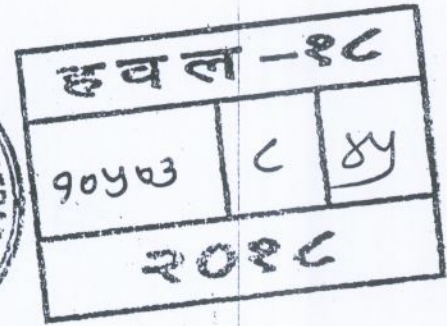 हवल -१८
१०५७३ ८ ४५
२०१८